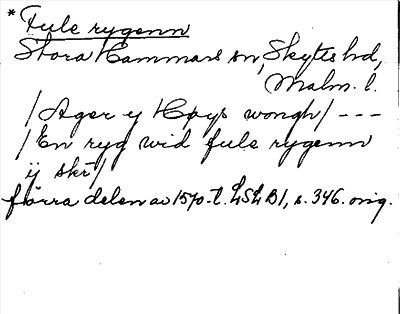 * Fule rygenn
Stora Hammars sn, Skytts hd,
Malm. l.
/Ager y Høys wongh/ - - -
/En ryg wid fule rygenn
ij skr/
förra delen av 1570-t. LSLB1, s. 346. orig.